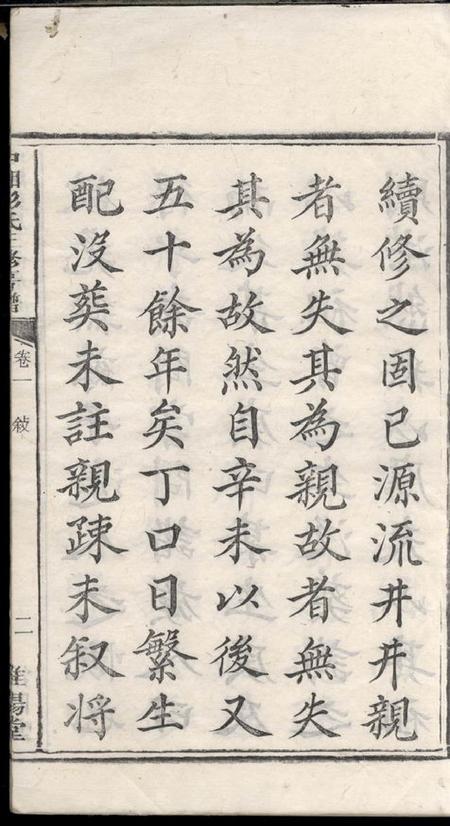 續修之固已源流井井親
者無失其為親故者無失
其為故然自辛未以後又
五十餘年矣丁口日繁生
配沒葬未註親疎未叙将
卷一 敍
二
陽堂